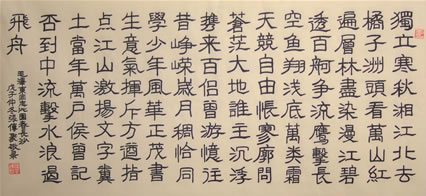 獨立寒秋湘江北去
橘子洲頭看萬山紅
遍層林盡染漫江碧
透百舸爭流鷹擊長
空魚翔浅底萬類霜
天競自由悵寥廓問
蒼茫大地誰主沉浮
携来百侣曾游憶往
昔崢嶸歲月稠恰同
學少年風華正茂書
生意氣揮斥方遒指
点江山激揚文字糞
土當年萬戶侯曾記
否到中流擊水浪遏
飛舟
毛澤東沁園春長沙
戊子仲冬張傳